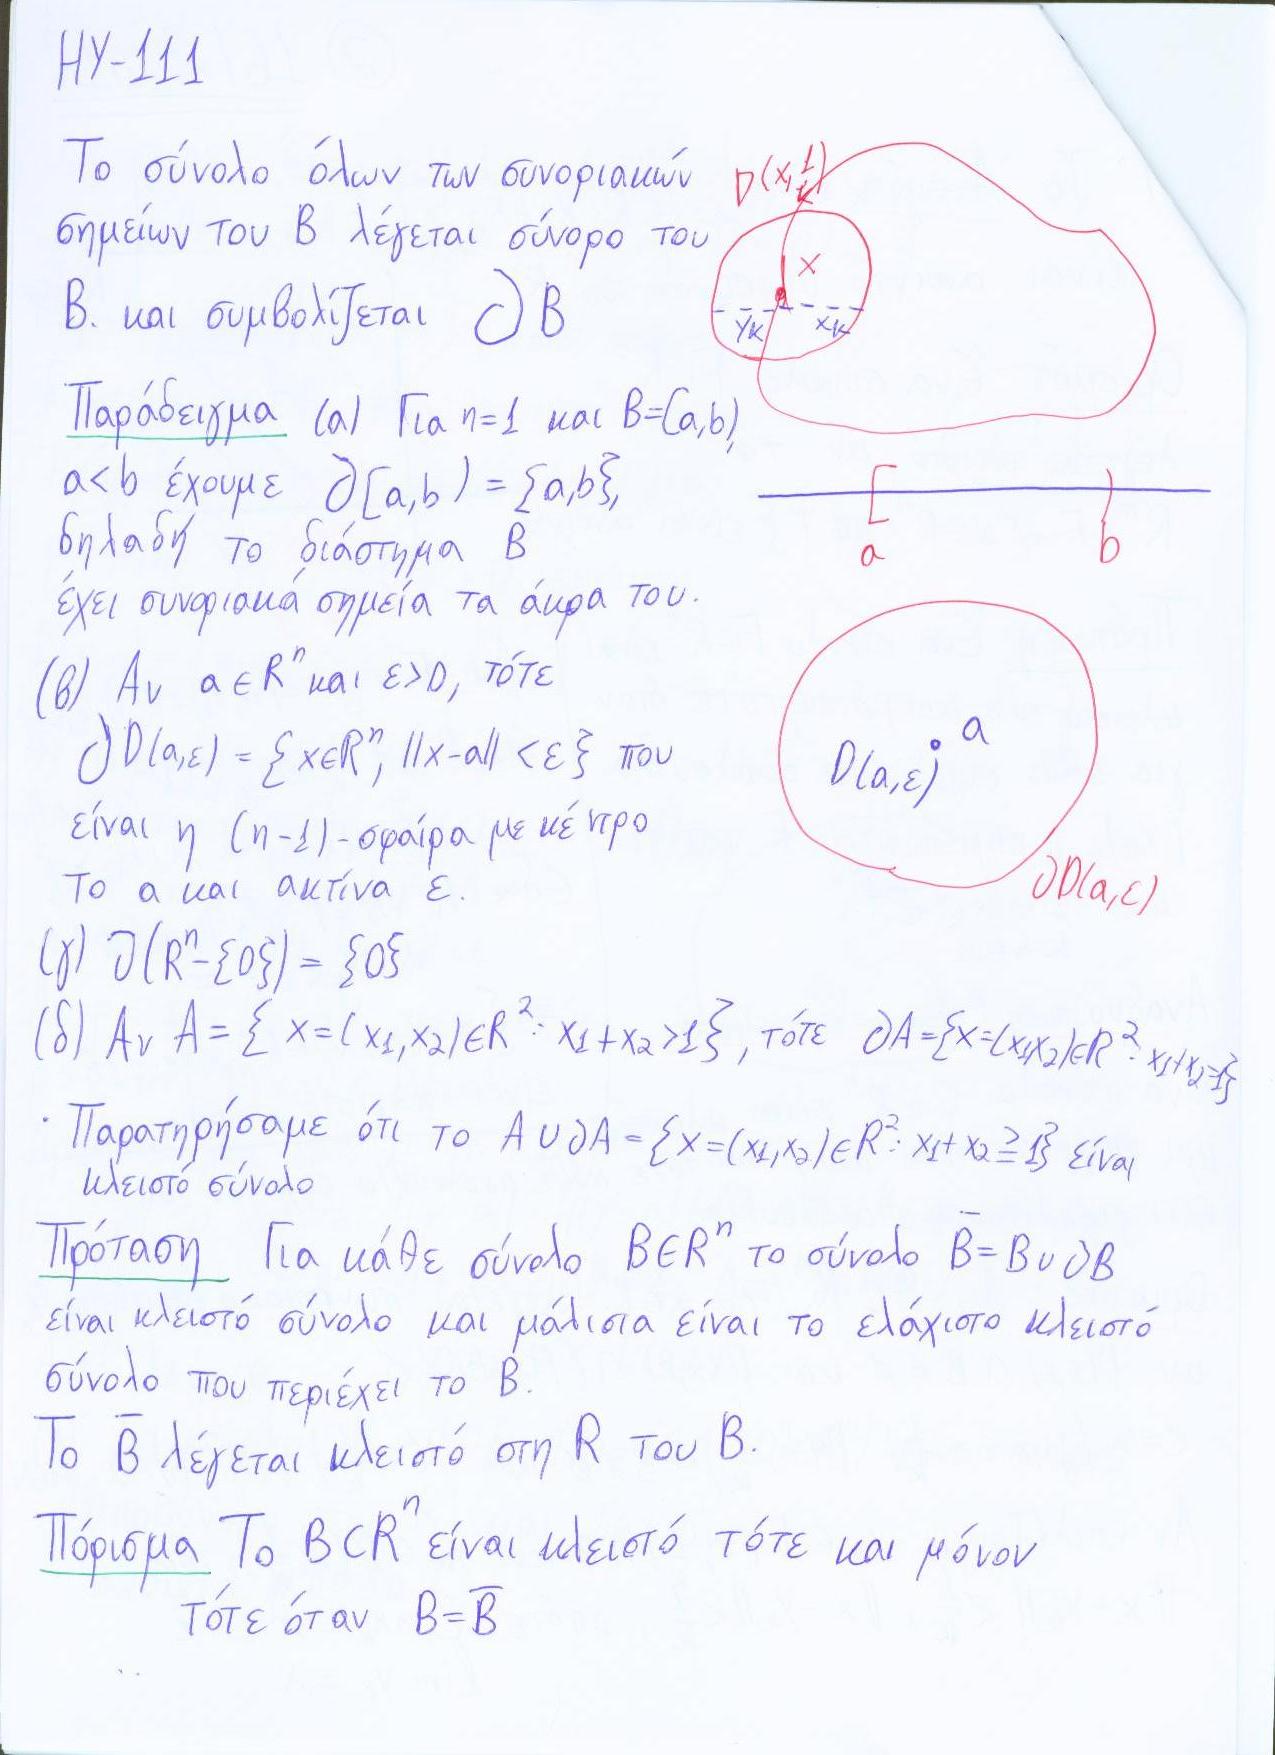 ΗΥ-111
Το σύνολο όλων των συνοριακών
σημείων του Β λέγεται σύνορο του
Β. και συμβολίζεται ∂Β
Παράδειγμα (α) Για n=1 και Β=[a,b),
a<b έχουμε ∂[a,b) = {a,b},
δηλαδή το διάστημα Β
έχει συνοριακά σημεία τα άκρα του.
(β) Αν a∈R^n και ε>0, τότε
∂D(a,ε) = {x∈R^n, ||x-a|| < ε} που
είναι η (n-1)-σφαίρα με κέντρο
το a και ακτίνα ε.
(γ) ∂(R^n-{0}) = {0}
(δ) Αν A = { x=(x1,x2)∈R^2: x1+x2>1}, τότε ∂A={x=(x1,x2)∈R^2: x1+x2=1}
· Παρατηρήσαμε ότι το A∪∂A = {x=(x1,x2)∈R^2: x1+x2≥1} είναι
κλειστό σύνολο
Πρόταση Για κάθε σύνολο B∈R^n το σύνολο B̄=B∪∂B
είναι κλειστό σύνολο και μάλιστα είναι το ελάχιστο κλειστό
σύνολο που περιέχει το Β.
Το B̄ λέγεται κλειστό στη R του B.
Πόρισμα Το B⊂R^n είναι κλειστό τότε και μόνον
τότε όταν B=B̄
x
yκ xκ
a b
D(a,ε) a
∂D(a,ε)